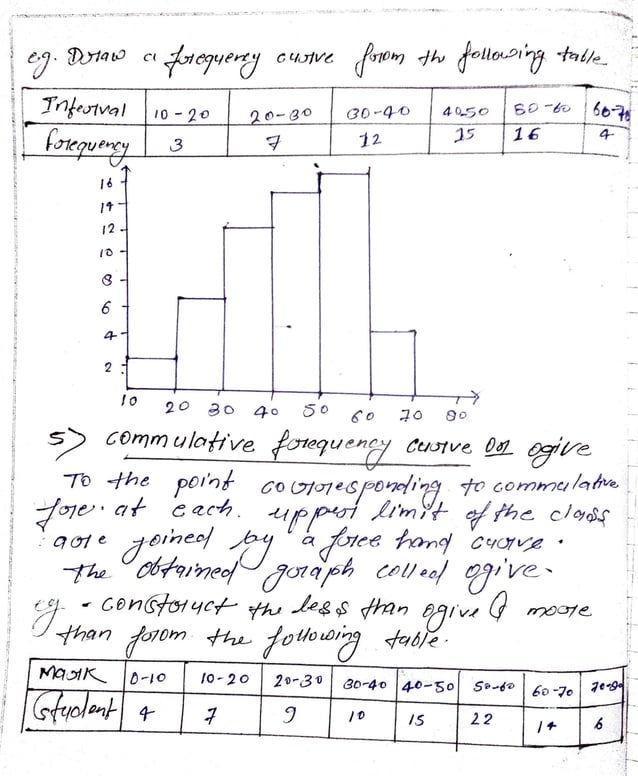 e.g. Draw a frequency curve from the following table
Interval 10-20 20-30 30-40 40-50 50-60 60-70
frequency 3 7 12 15 16 4
16
14
12
10
8
6
4
2
10 20 30 40 50 60 70 80
5) commulative frequency curve or ogive
To the point corresponding to commulative
fre. at each. upper limit of the class
are joined by a free hand curve.
The obtained graph called ogive.
eg - construct the less than ogive & more
than from the following table.
Mark 0-10 10-20 20-30 30-40 40-50 50-60 60-70 70-80
Student 4 7 9 10 15 22 14 6